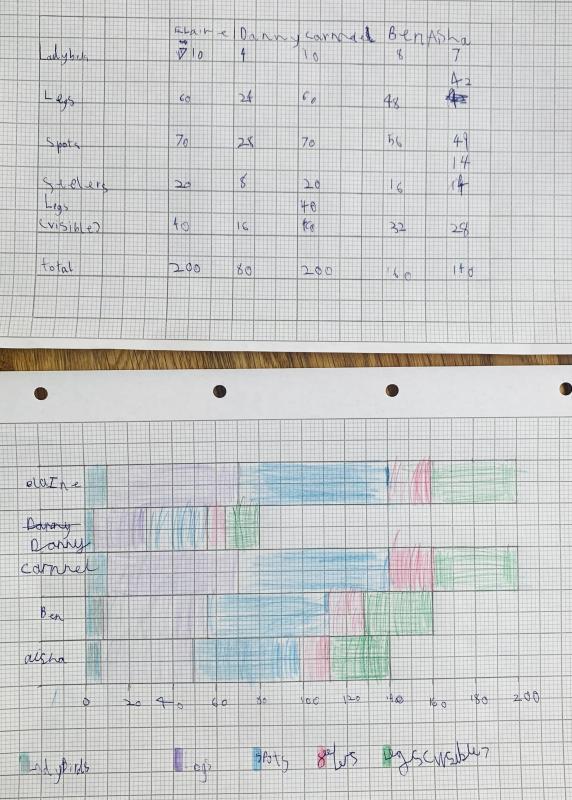 Elaine Danny Carmel Ben Aisha
Ladybirds 10 4 10 8 7
42
Legs 60 24 60 48
Spots 70 28 70 56 49
14
20 8 20 16
Legs 40
(visible) 40 16 32 28
total 200 80 200 160 140
elaIne
Danny
Danny
Ben
aisha
0 20 40 60 80 100 120 140 160 180 200
LadyBirds Legs Spots legs(visible)